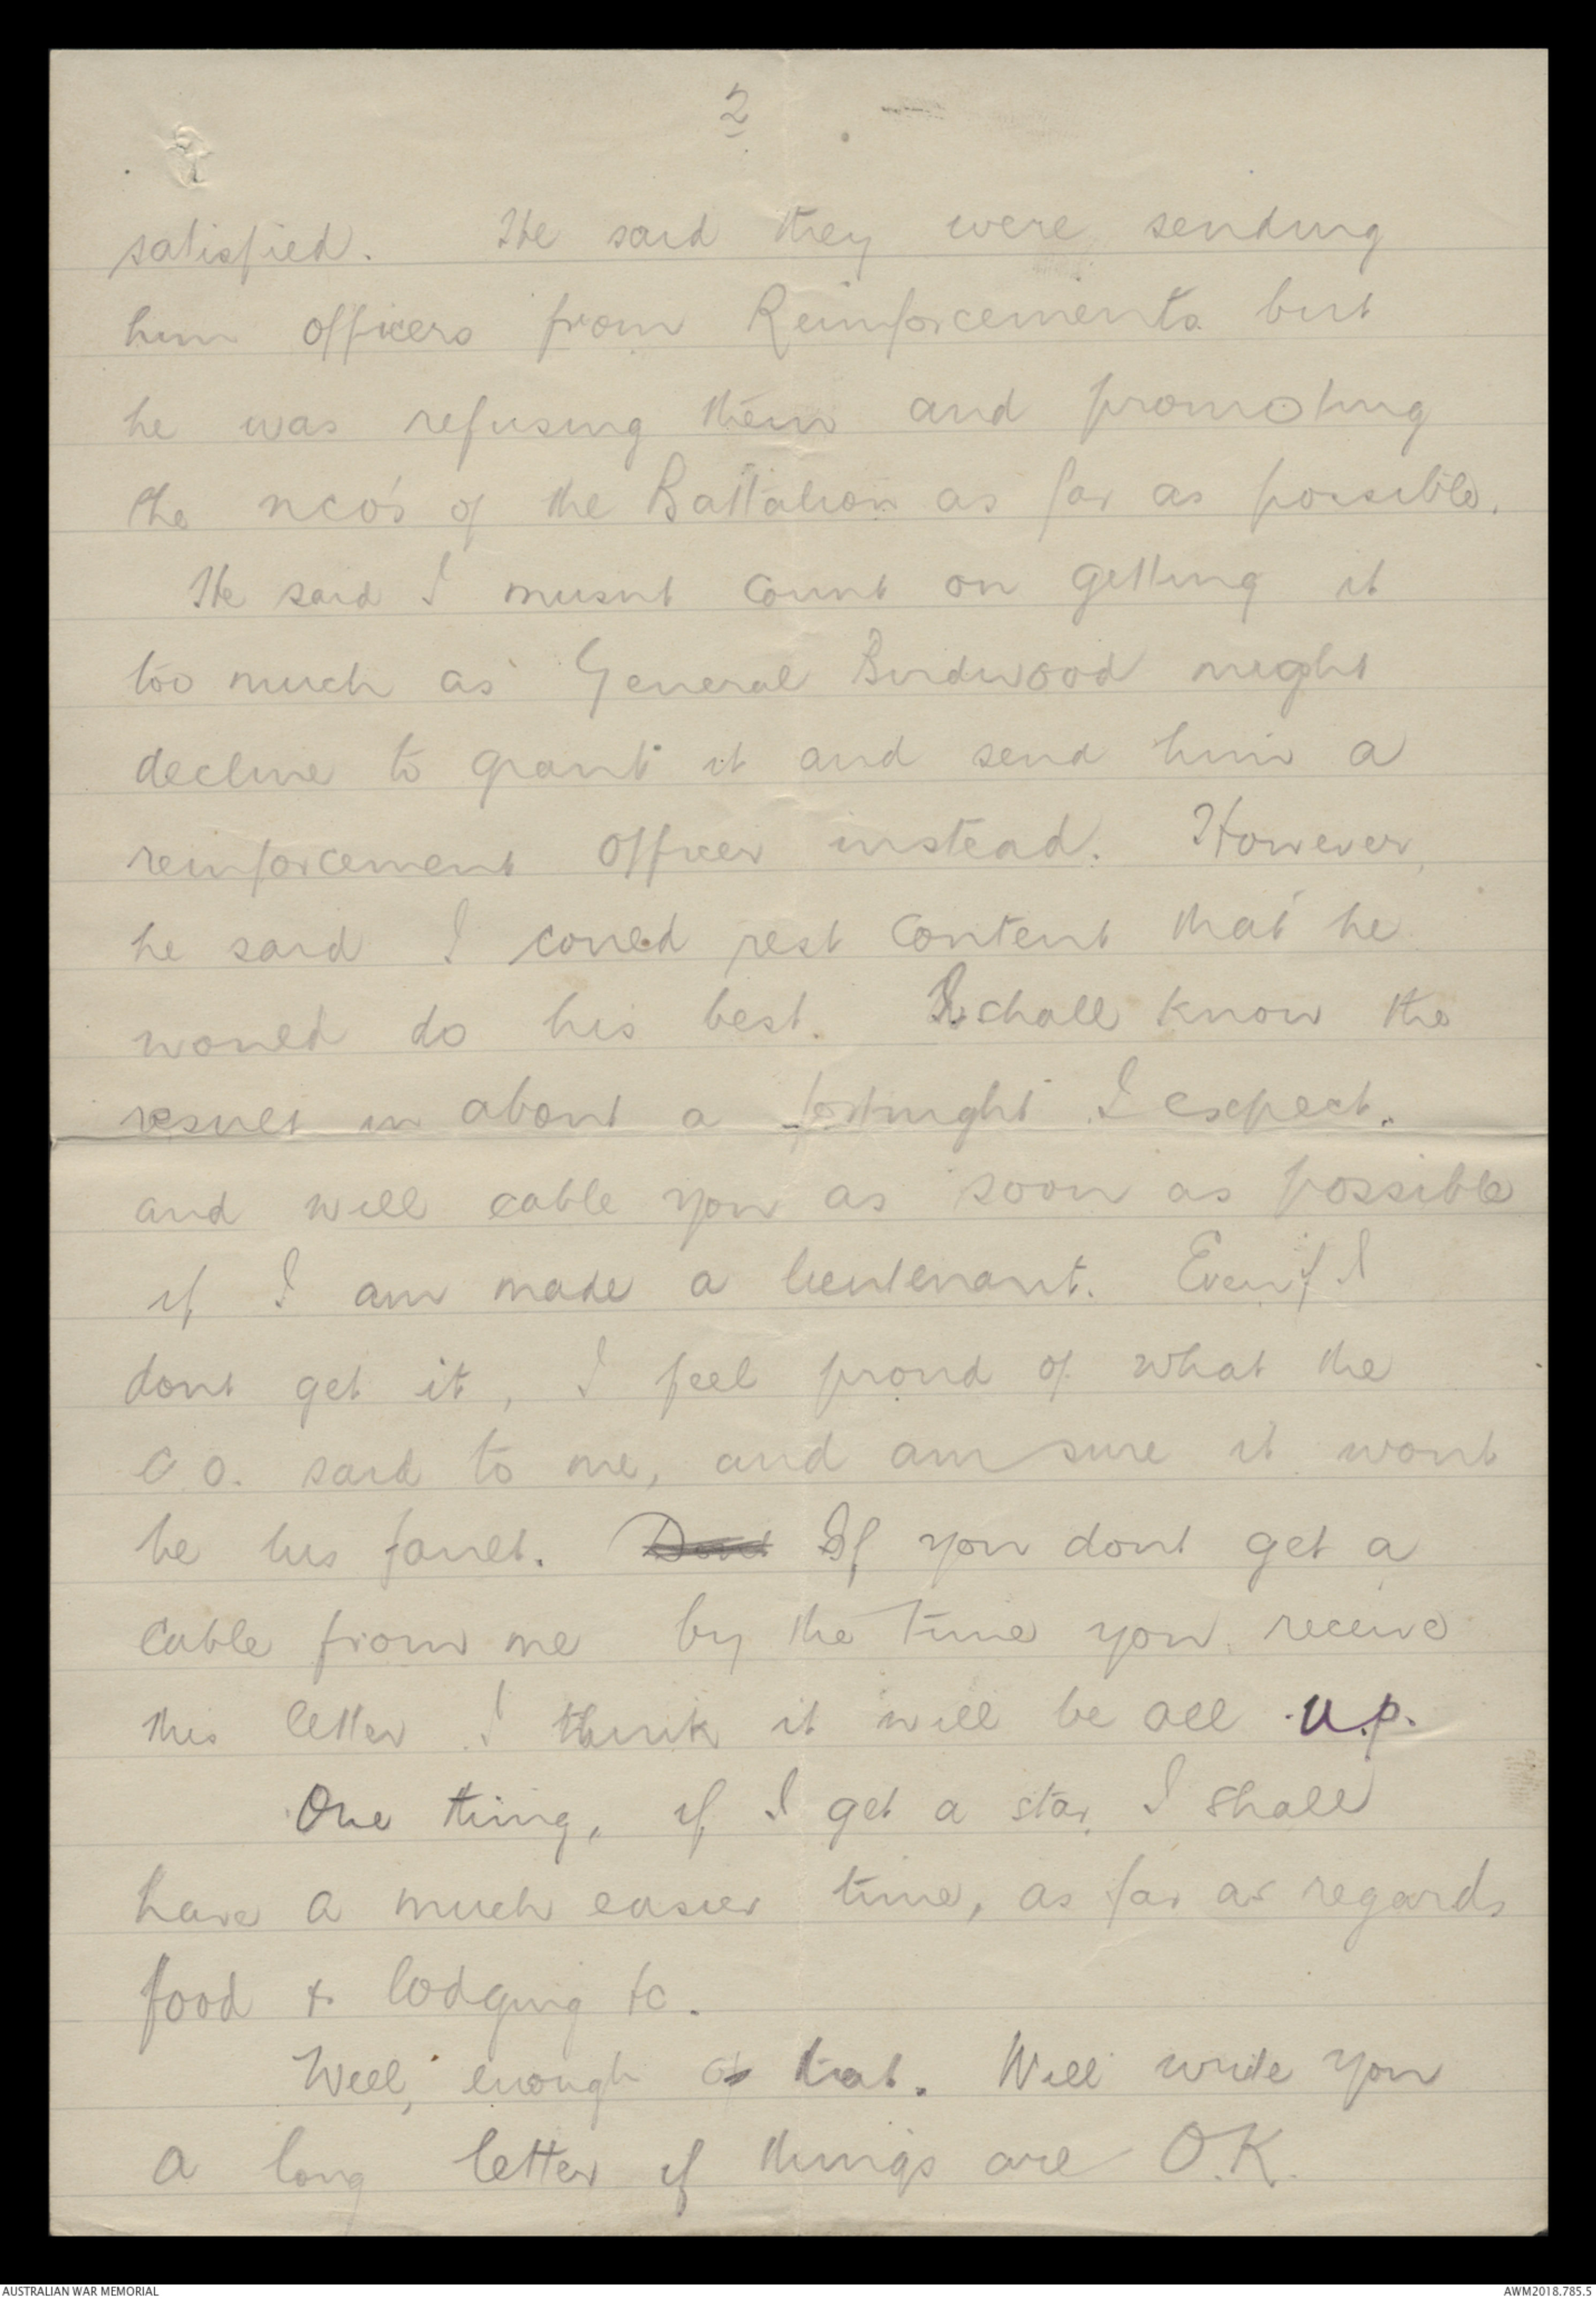 2
satisfied. He said they were sending
him officers from Reinforcements but
he was refusing them and promoting
the nco's of the Battalion as far as possible.
He said I musnt count on getting it
too much as General Birdwood might
decline to grant it and send him a
reinforcement officer instead. However,
he said I could rest content that he
would do his best. I shall know the
result in about a fortnight I expect.
and will cable you as soon as possible
if I am made a lieutenant. Even if I
dont get it, I feel proud of what the
C.O. said to me, and am sure it wont
be his fault. Dont If you dont get a
cable from me by the time you receive
this letter I think it will be all u.p.
One thing, if I get a star I shall
have a much easier time, as far as regards
food & lodging &c.
Well, enough of that. Will write you
a long letter if things are O.K.
AUSTRALIAN WAR MEMORIAL
AWM2018.785.5